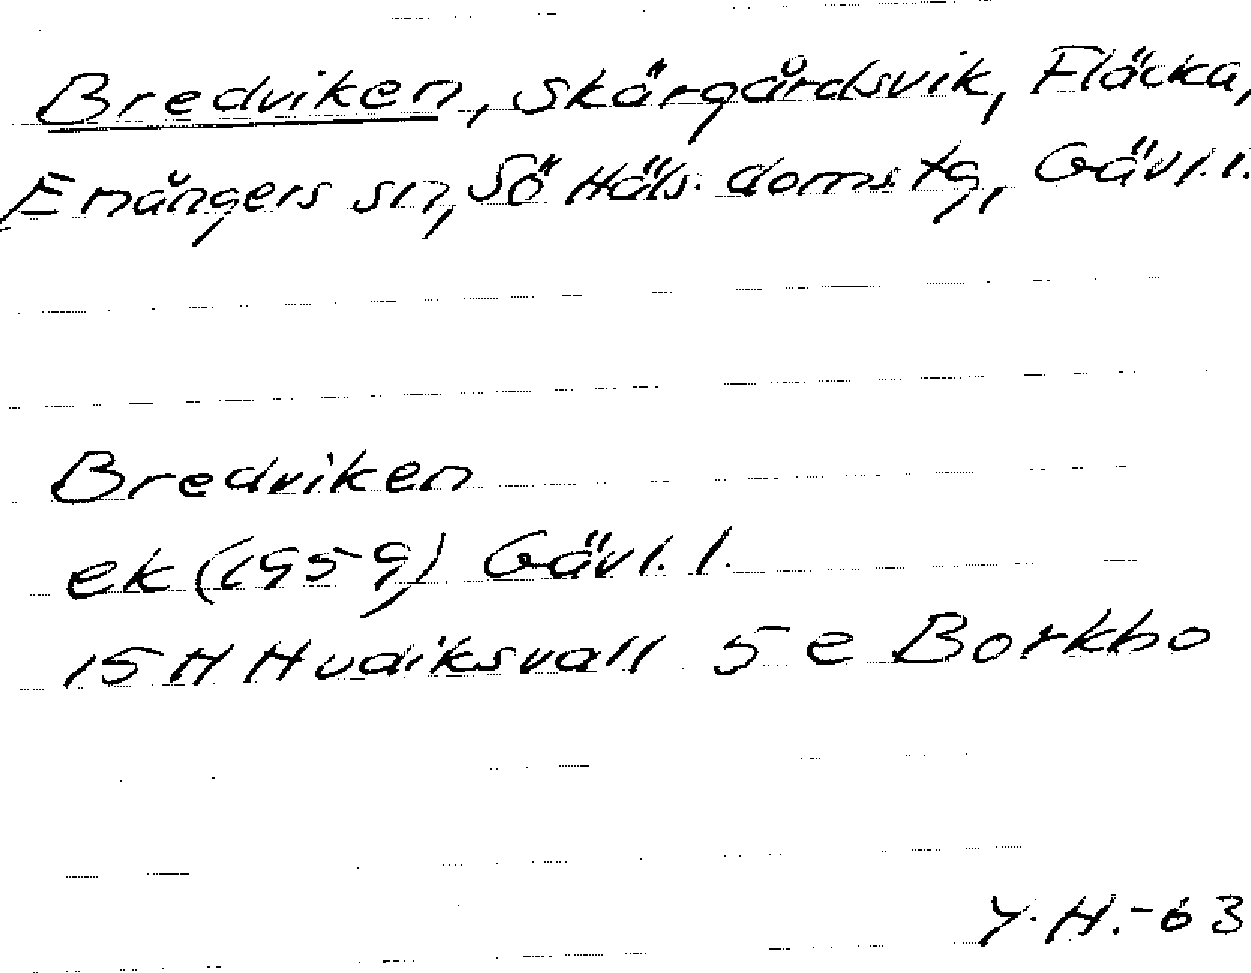 Bredviken, skärgårdsvik, Fläcka,
Enångers sn, Sö Häls. domstg, Gävl.l.
Bredviken
ek (1959) Gävl.l.
15 H Hudiksvall 5 e Borkbo
Y.H.-63